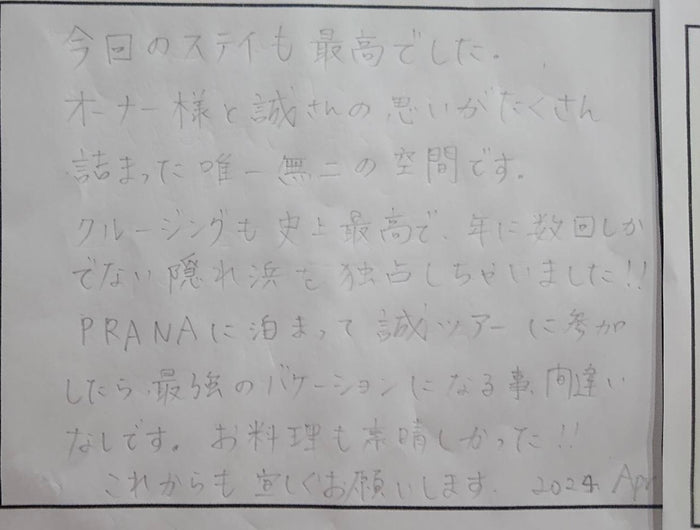 今回のステイも最高でした。
オーナー様と誠さんの思いがたくさん
詰まった唯一無二の空間です。
クルージングも史上最高で、年に数回しか
でない隠れ浜も独占しちゃいました!!
PRANAに泊まって誠ツアーに参加
したら、最強のバケーションになる事、間違い
なしです。お料理も素晴しかった!!
これからも宜しくお願いします。 2024. Apr